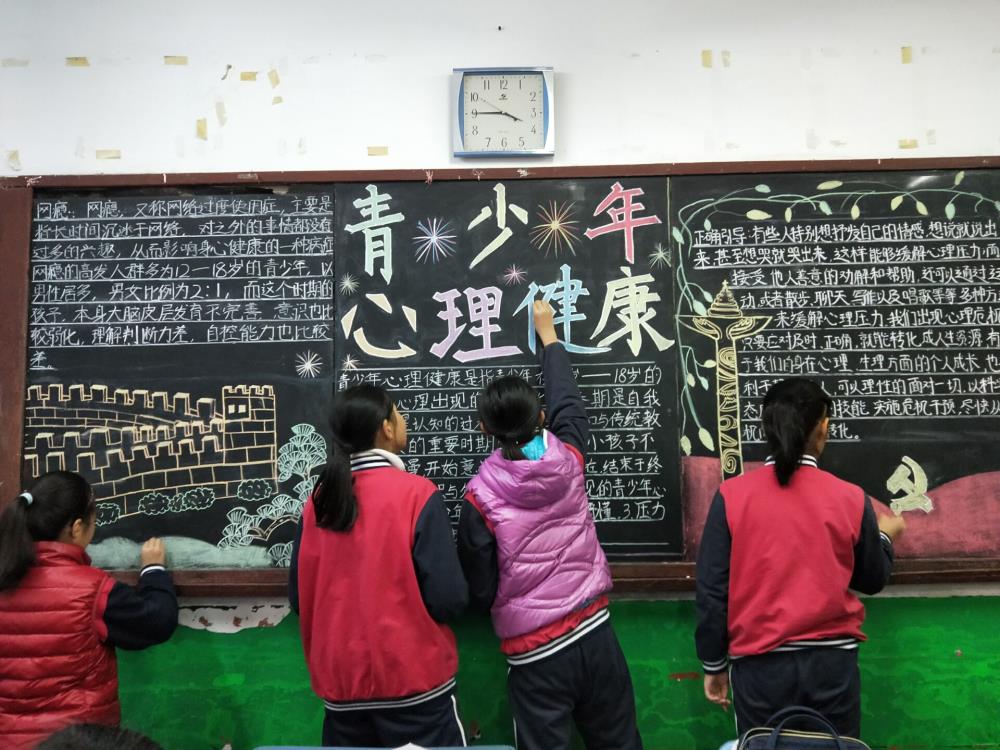 青少年
心理健康
网瘾:网瘾,又称网络过度使用症,主要是
指长时间沉迷于网络,对之外的事情都没有
过多的兴趣,从而影响身心健康的一种病症
网瘾的高发人群多为12—18岁的青少年,以
男性居多,男女比例为2:1,而这个时期的
孩子,本身大脑皮层发育不完善,意识也比
较弱化,理解判断力差,自控能力也比较
差。
青少年心理健康是指青少年 —18岁的
心理出现的 期是自我
是认知的过 与传统教
的重要时期 小孩子不
开始 在,结束于终
见的青少年心
3.压力
正确引导:有些人特别想抒发自己的情感,想说就说出
来,甚至想哭就哭出来,这样能够缓解心理压力,而
接受他人善意的劝解和帮助,还可以通过运
动,或者散步、聊天、写作以及唱歌等等多种方
来缓解心理压力,我们出现心理危机
只要应对及时,正确,就能转化成人生资源,有
于我们自身在心理、生理方面的个人成长,也
利于 人,可以理性的面对一切,以科
态 技能,实施危机干预,尽快从
机 化。
12 1 2 3 4 5 6 7 8 9 10 11